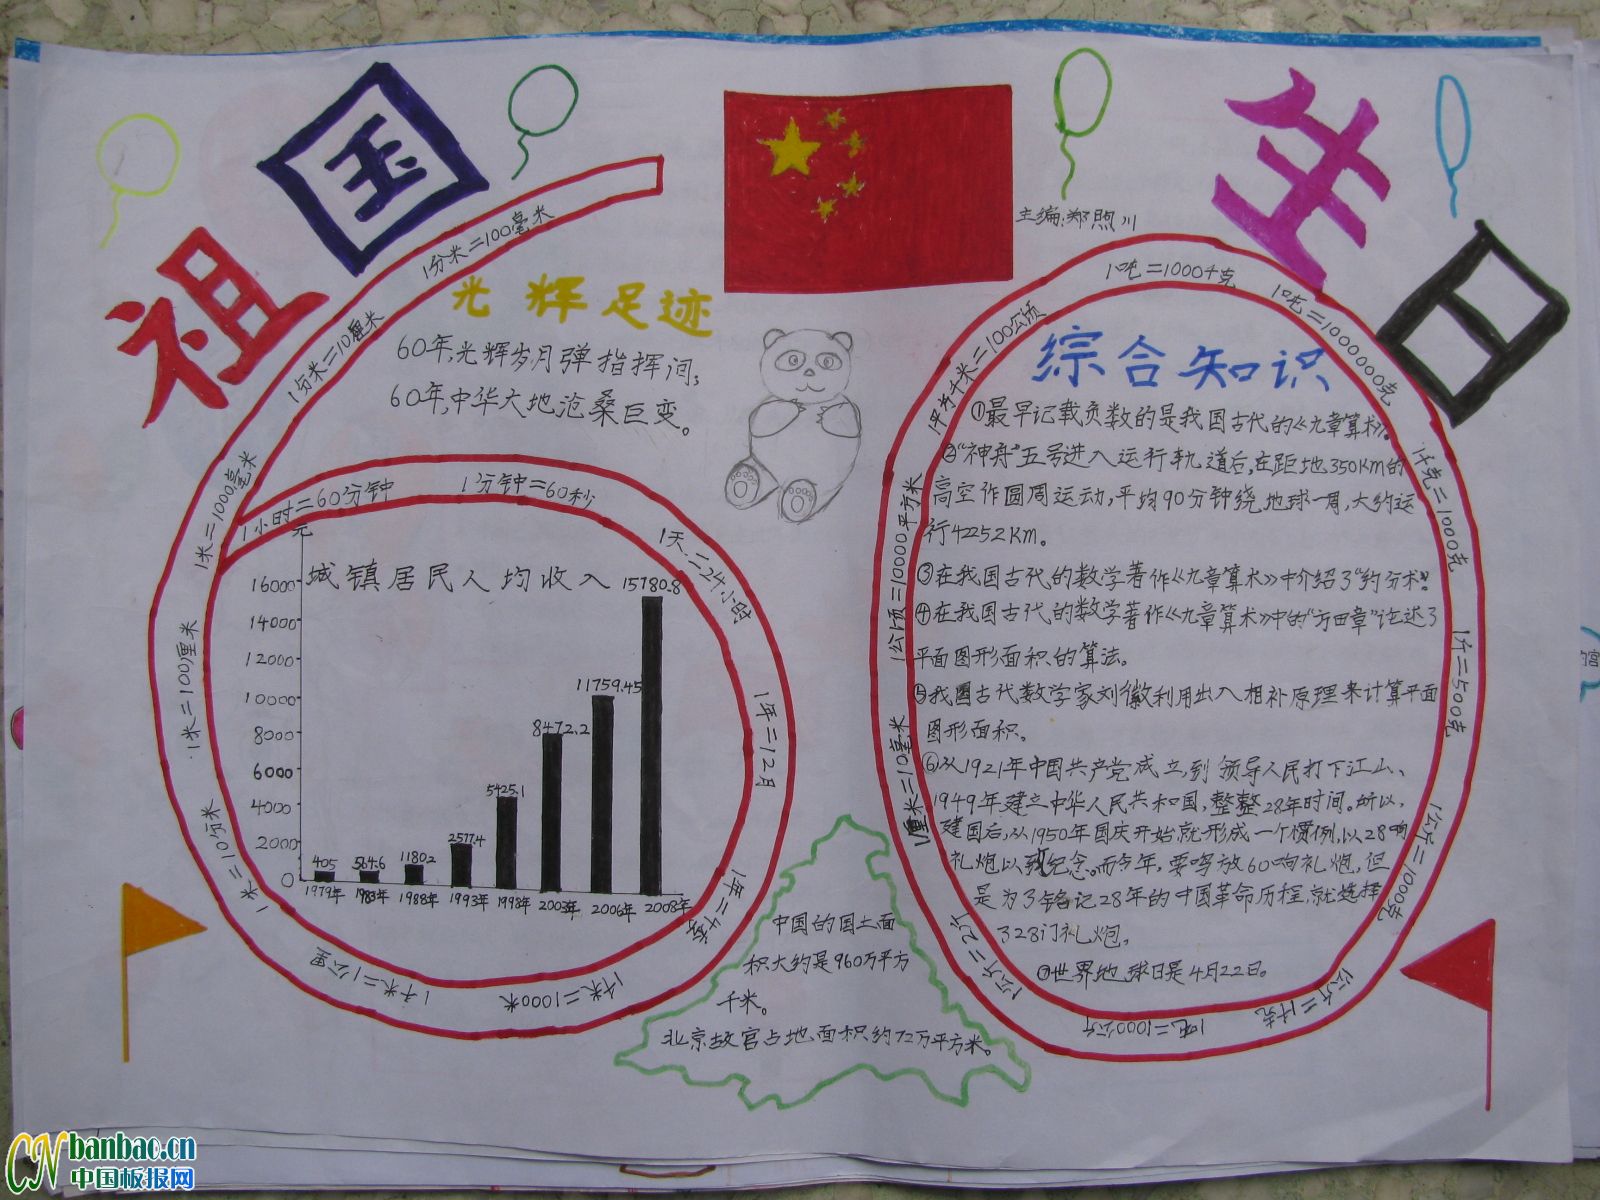 祖国
生日
主编:郑煦川
光辉足迹
60年,光辉岁月弹指挥间;
60年,中华大地沧桑巨变。
1分米=100毫米
1分米=10厘米
1米=1000毫米
1米=100厘米
1米=10分米
1千米=1公里
1千米=1000米
1小时=60分钟
1分钟=60秒
1天=24小时
1年=12月
1年=4季
元
城镇居民人均收入
16000
14000
12000
10000
8000
6000
4000
2000
0
405
564.6
1180.2
2577.4
5425.1
8472.2
11759.45
15780.8
1979年 1983年 1988年 1993年 1998年 2003年 2006年 2008年
中国的国土面
积大约是960万平方
千米。
北京故宫占地面积约72万平方米。
1厘米=10毫米
1公顷=10000平方米
1平方千米=100公顷
1吨=1000千克
1吨=1000000克
1千克=1000克
1斤=500克
1公斤=1000克
1公斤=1千克
1吨=1000公斤
1公斤=2斤
综合知识
①最早记载负数的是我国古代的《九章算术》。
②“神舟”五号进入运行轨道后,在距地350KM的
高空作圆周运动,平均90分钟绕地球一周,大约运
行42252KM。
③在我国古代的数学著作《九章算术》中介绍了“约分术”。
④在我国古代的数学著作《九章算术》中的“方田章”论述了
平面图形面积的算法。
⑤我国古代数学家刘徽利用出入相补原理来计算平面
图形面积。
⑥从1921年中国共产党成立,到领导人民打下江山、
1949年建立中华人民共和国,整整28年时间。所以,
建国后,从1950年国庆开始就形成一个惯例,以28响
礼炮以致纪念。而今年,要鸣放60响礼炮,但
是为了铭记28年的中国革命历程,就选择
了28门礼炮。
⑦世界地球日是4月22日。
CN banbao.cn
中国板报网